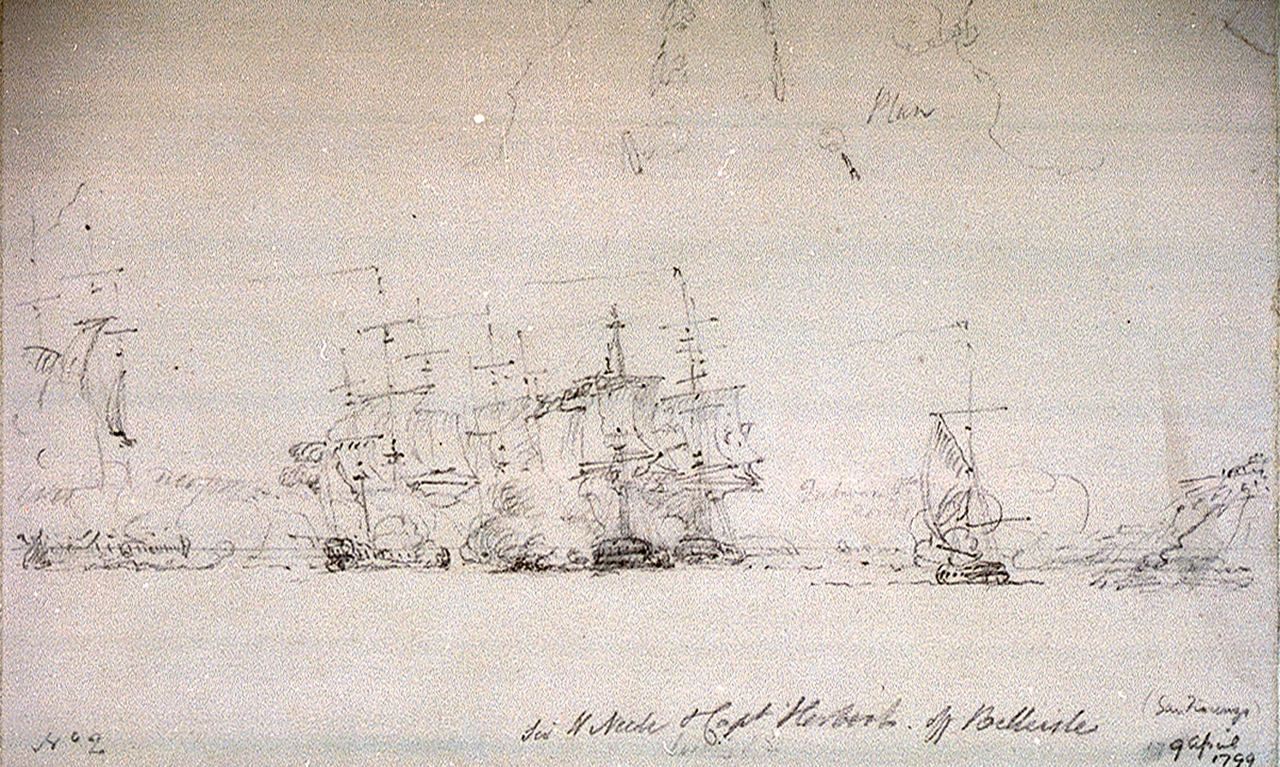 Plan
Sir H Neale & Capt Herbert. off Belleisle
(San Fiorenzo)
9 April
1799
No 2